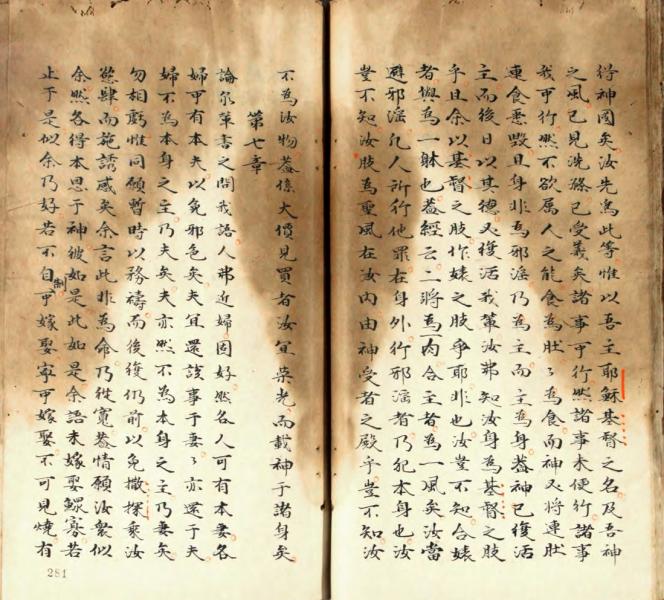 得神國矣汝先為此等惟以吾主耶穌基督之名及吾神
之風已見洗滌已受義矣諸事可行然諸事未便行諸事
我可行然不欲属人之能食為肚〻為食而神又將連肚
連食悉毀且身非為邪淫乃為主而主為身葢神已復活
主而後日以其德又復活我輩汝弗知汝身為基督之肢
乎且余以基督之肢作婊之肢乎耶非也汝豈不知合婊
者與為一躰也葢經云二將為肉合主者為一風矣汝當
避邪淫凢人所行他罪在身外行邪淫者乃犯本身也汝
豈不知汝肢為聖風在汝內由神受者之殿乎豈不知汝
不為汝物葢係大價見買者汝宜榮光而載神于諸身矣
第七章
論汆䓁書之問我語人弗近婦固好然各人可有本妻各
婦可有本夫以免邪色矣夫宜還該事于妻〻亦還于夫
婦不為本身之主乃夫矣夫亦然不為本身之主乃妻矣
勿相虧惟同願暫時以務禱而後復仍前以免撒探乘汝
慾肆而施誘惑矣余言此非為命乃從寬葢情願汝衆似
余然各得本恩于神彼如是此如是余語未嫁娶鰥寡若
止于是似余乃好若不自制可嫁娶寧可嫁娶不可見燒有
281